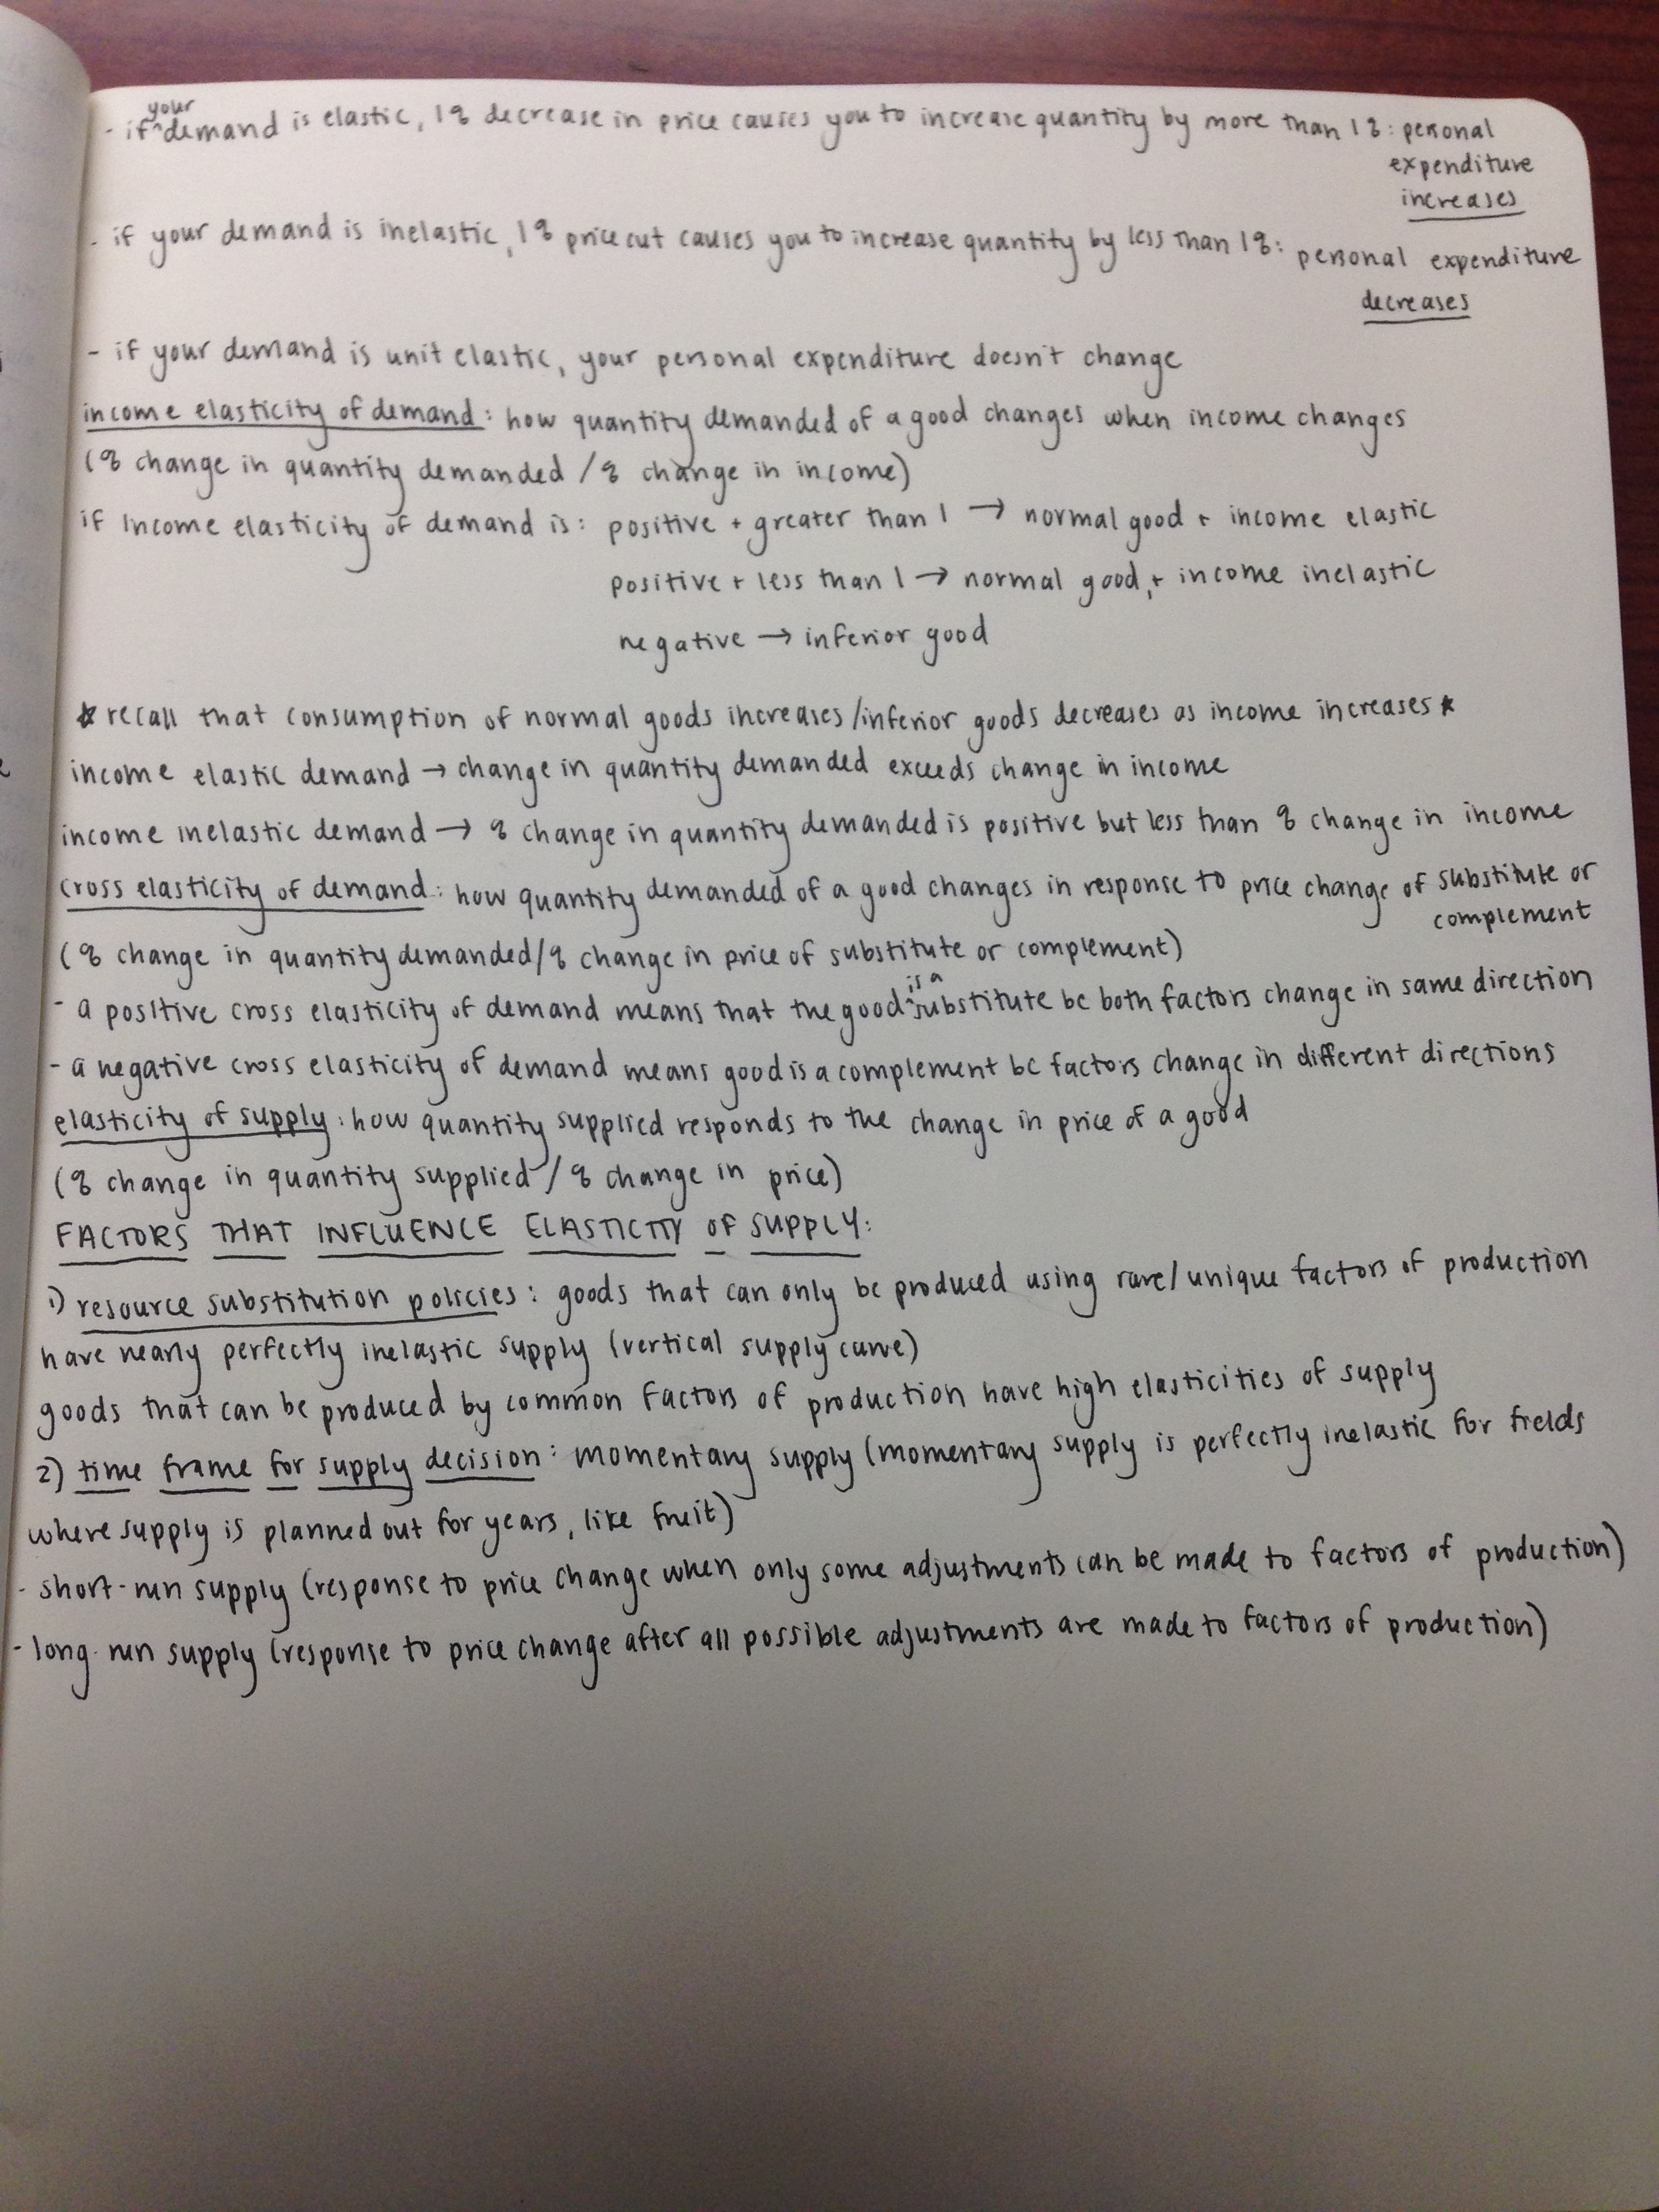 - if your demand is elastic, 1% decrease in price causes you to increase quantity by more than 1%: personal
expenditure
increases
- if your demand is inelastic, 1% price cut causes you to increase quantity by less than 1%: personal expenditure
decreases
- if your demand is unit elastic, your personal expenditure doesn't change
income elasticity of demand: how quantity demanded of a good changes when income changes
(% change in quantity demanded / % change in income)
if income elasticity of demand is: positive + greater than 1 → normal good + income elastic
positive + less than 1 → normal good, + income inelastic
negative → inferior good
☆ recall that consumption of normal goods increases/inferior goods decreases as income increases ☆
income elastic demand → change in quantity demanded exceeds change in income
income inelastic demand → % change in quantity demanded is positive but less than % change in income
cross elasticity of demand: how quantity demanded of a good changes in response to price change of substitute or
complement
(% change in quantity demanded/% change in price of substitute or complement)
- a positive cross elasticity of demand means that the good is a substitute bc both factors change in same direction
- a negative cross elasticity of demand means good is a complement bc factors change in different directions
elasticity of supply: how quantity supplied responds to the change in price of a good
(% change in quantity supplied / % change in price)
FACTORS THAT INFLUENCE ELASTICITY OF SUPPLY:
1) resource substitution policies: goods that can only be produced using rare/unique factors of production
have nearly perfectly inelastic supply (vertical supply curve)
goods that can be produced by common factors of production have high elasticities of supply
2) time frame for supply decision: momentary supply (momentary supply is perfectly inelastic for fields
where supply is planned out for years, like fruit)
- short-run supply (response to price change when only some adjustments can be made to factors of production)
- long-run supply (response to price change after all possible adjustments are made to factors of production)